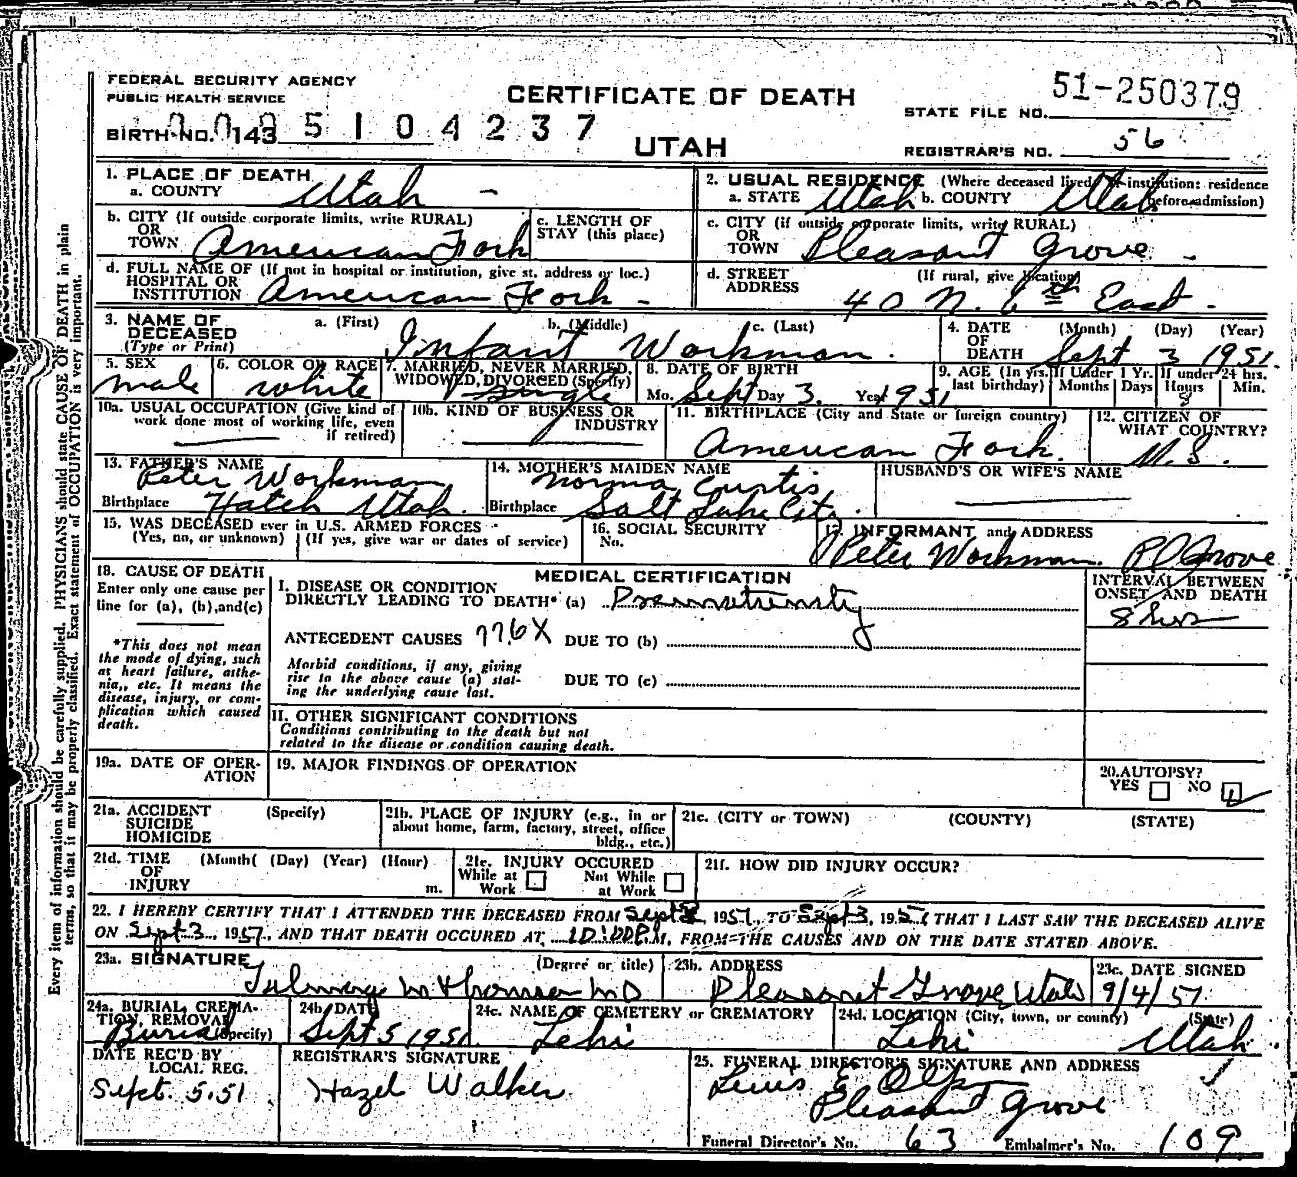 FEDERAL SECURITY AGENCY
PUBLIC HEALTH SERVICE
CERTIFICATE OF DEATH
STATE FILE NO. 51-250379
BIRTH NO. 143 5104237
UTAH
REGISTRAR'S NO. 56
1. PLACE OF DEATH
a. COUNTY Utah -
2. USUAL RESIDENCE (Where deceased lived. If institution: residence before admission)
a. STATE Utah b. COUNTY Utah
b. CITY (If outside corporate limits, write RURAL) OR TOWN American Fork
c. LENGTH OF STAY (this place)
c. CITY (if outside corporate limits, write RURAL) OR TOWN Pleasant Grove -
d. FULL NAME OF (If not in hospital or institution, give st. address or loc.) HOSPITAL OR INSTITUTION American Fork -
d. STREET ADDRESS (If rural, give location) 40 N. 6th East -
3. NAME OF DECEASED (Type or Print) a. (First) b. (Middle) c. (Last) Infant Workman.
4. DATE OF DEATH (Month) (Day) (Year) Sept 3 1951.
5. SEX male
6. COLOR OR RACE white
7. MARRIED, NEVER MARRIED, WIDOWED, DIVORCED (Specify) Single
8. DATE OF BIRTH Mo. Sept Day 3. Year 1951
9. AGE (In yrs. last birthday) If Under 1 Yr. Months Days If under 24 hrs. Hours 8 Min.
10a. USUAL OCCUPATION (Give kind of work done most of working life, even if retired)
10b. KIND OF BUSINESS OR INDUSTRY
11. BIRTHPLACE (City and State or foreign country) American Fork.
12. CITIZEN OF WHAT COUNTRY? U.S.
13. FATHER'S NAME Peter Workman
Birthplace Hatch Utah.
14. MOTHER'S MAIDEN NAME Norma Curtis
Birthplace Salt Lake City.
HUSBAND'S OR WIFE'S NAME
15. WAS DECEASED ever in U.S. ARMED FORCES
(Yes, no, or unknown) (If yes, give war or dates of service)
16. SOCIAL SECURITY No.
17. INFORMANT and ADDRESS Peter Workman. Pl Grove
18. CAUSE OF DEATH
Enter only one cause per line for (a), (b), and (c)
*This does not mean the mode of dying, such as heart failure, asthenia, etc. It means the disease, injury, or complication which caused death.
MEDICAL CERTIFICATION
I. DISEASE OR CONDITION DIRECTLY LEADING TO DEATH* (a) Prematurity
INTERVAL BETWEEN ONSET AND DEATH
8 hrs
ANTECEDENT CAUSES 776X DUE TO (b)
Morbid conditions, if any, giving rise to the above cause (a) stating the underlying cause last.
DUE TO (c)
II. OTHER SIGNIFICANT CONDITIONS
Conditions contributing to the death but not related to the disease or condition causing death.
19a. DATE OF OPERATION
19. MAJOR FINDINGS OF OPERATION
20. AUTOPSY?
YES NO
21a. ACCIDENT SUICIDE HOMICIDE (Specify)
21b. PLACE OF INJURY (e.g., in or about home, farm, factory, street, office bldg., etc.)
21c. (CITY or TOWN) (COUNTY) (STATE)
21d. TIME OF INJURY (Month( (Day) (Year) (Hour) m.
21e. INJURY OCCURED While at Work Not While at Work
21f. HOW DID INJURY OCCUR?
22. I HEREBY CERTIFY THAT I ATTENDED THE DECEASED FROM Sept 3, 1951, TO Sept 3, 1951 THAT I LAST SAW THE DECEASED ALIVE
ON Sept 3, 1951, AND THAT DEATH OCCURED AT 10:00 P.M, FROM THE CAUSES AND ON THE DATE STATED ABOVE.
23a. SIGNATURE (Degree or title) M Thomson MD
23b. ADDRESS Pleasant Grove, Utah
23c. DATE SIGNED 9/4/51
24a. BURIAL, CREMATION, REMOVAL (Specify) Burial
24b. DATE Sept 5 1951
24c. NAME OF CEMETERY or CREMATORY Lehi
24d. LOCATION (City, town, or county) (State) Lehi Utah.
DATE REC'D BY LOCAL REG. Sept. 5.51
REGISTRAR'S SIGNATURE Hazel Walker
25. FUNERAL DIRECTOR'S SIGNATURE AND ADDRESS
Lewis E Olpin
Pleasant Grove
Funeral Director's No. 63 Embalmer's No. 109.
Every item of information should be carefully supplied. PHYSICIANS should state CAUSE OF DEATH in plain
terms, so that it may be properly classified. Exact statement of OCCUPATION is very important.